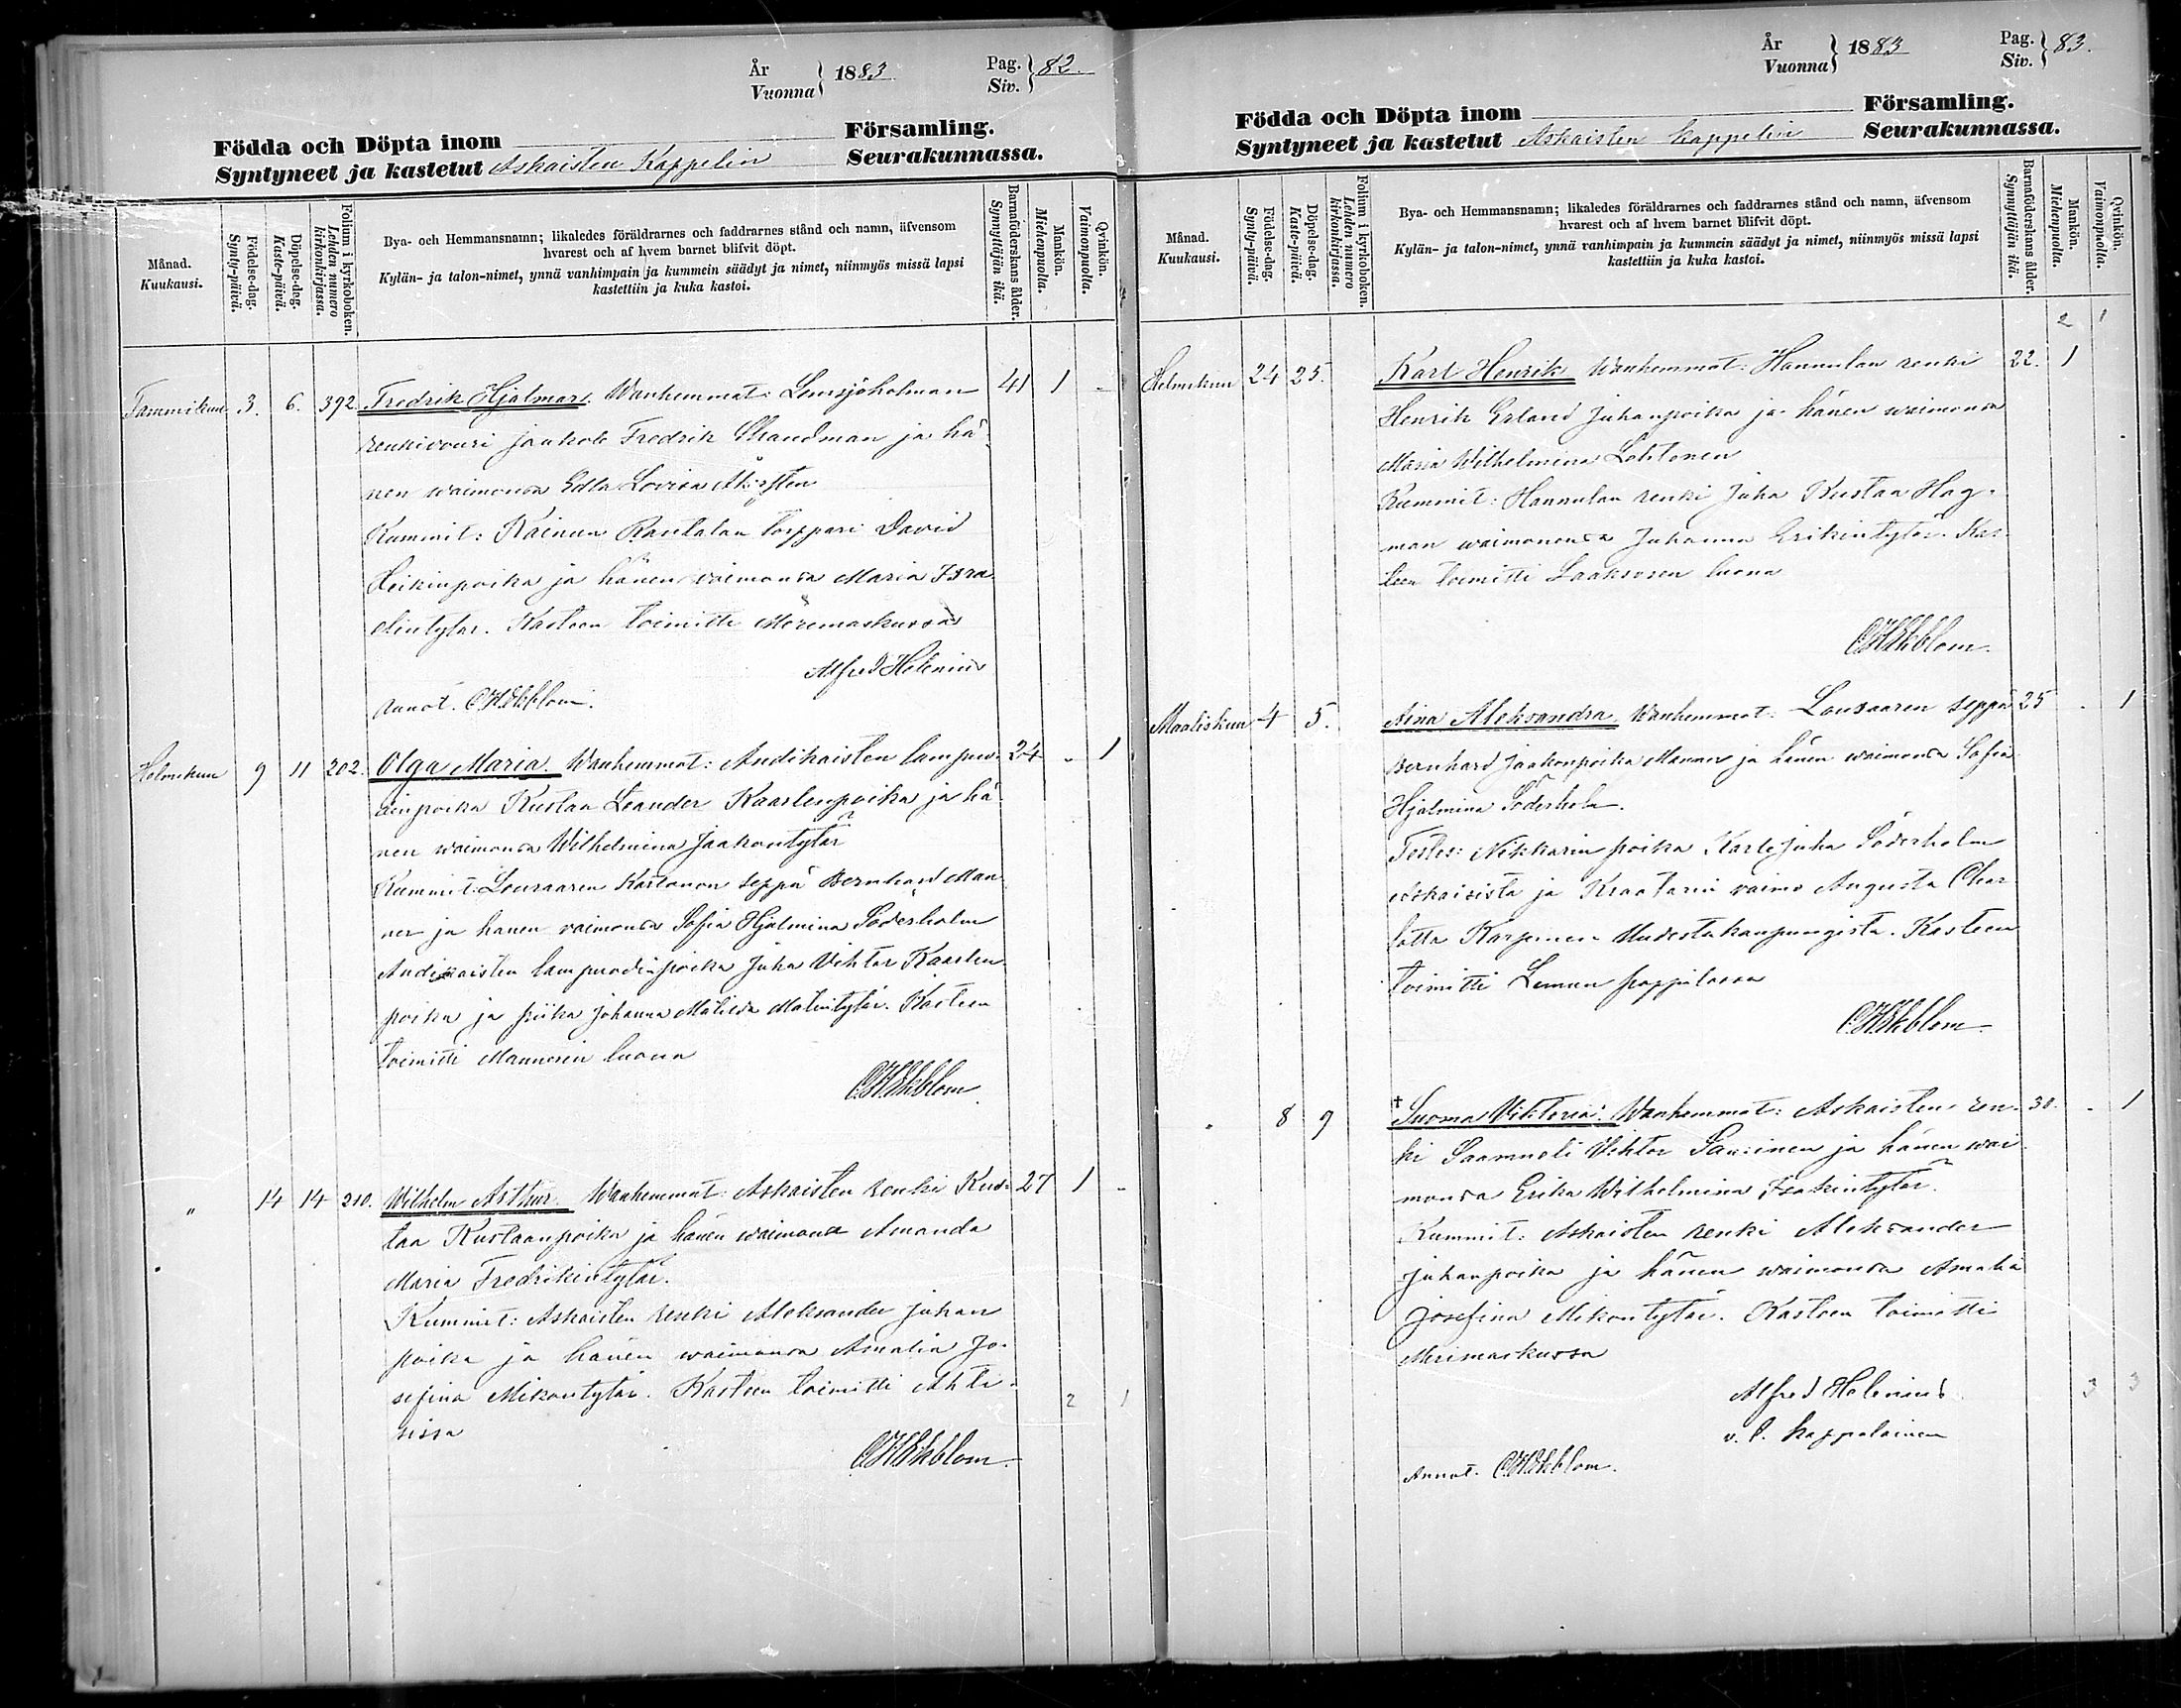 År
Vuonna } 1883 Pag.
Siv. } 82.
Födda och Döpta inom Församling.
Syntyneet ja kastetut Askaisten Kappelin Seurakunnassa.
Månad.
Kuukausi.
Födelse-dag.
Synty-päivä.
Döpelse-dag.
Kaste-päivä.
Folium i kyrkoboken.
Lehden numero
kirkonkirjassa.
Bya- och Hemmansnamn; likaledes föräldrarnes och faddrarnes stånd och namn, äfvensom
hvarest och af hvem barnet blifvit döpt.
Kylän- ja talon-nimet, ynnä vanhimpain ja kummein säädyt ja nimet, niinmyös missä lapsi
kastettiin ja kuka kastoi.
Barnaföderskans ålder.
Synnyttäjän ikä.
Mankön.
Miehenpuolia.
Qvinkön.
Vaimonpuolia.
Tammikuu 3. 6. 392. Fredrik Hjalmar. Wanhemmat: Lemsjöholman 41 1 -
renkivouri Jaakob Fredrik Strandman ja hä-
nen waimonsa Edla Lovisa
Kummit: Kainun Rantalan torppari David
Heikinpoika ja hänen vaimonsa Maria Isra-
elintytär. Kasteen toimitti Merimaskussa
Alfred Helenius
Annot. CHEkblom.
Helmikuu 9 11 202. Olga Maria. Wanhemmat: Andikaisten lampuo- 24 - 1
dinpoika Kustaa Leander Kaarlenpoika ja hä-
nen waimonsa Wilhelmina Jaakontytär
Kummit: Lousaaren Kartanon seppä Bernhard Man-
ner ja hänen vaimonsa Sofia Hjalmina Söderholm
Andikaisten lampuodinpoika Juha Vihtor Kaarlen-
poika ja piika Johanna Matilda Matintytär. Kasteen
toimitti Mannerin luona
CHEkblom
" 14 14 210. Wilhelm Arthur. Wanhemmat: Askaisten renki Kus- 27 1 -
taa Kustaanpoika ja hänen waimonsa Amanda
Maria Fredrikintytär.
Kummit: Askaisten renki Aleksander Juhan
poika ja hänen waimonsa Amalia Jo-
sefina Mikontytär. Kasteen toimitti Ahti-
sissa
2 1
CHEkblom.
År
Vuonna } 1883 Pag.
Siv. } 83.
Födda och Döpta inom Församling.
Syntyneet ja kastetut Askaisten kappelin Seurakunnassa.
Månad.
Kuukausi.
Födelse-dag.
Synty-päivä.
Döpelse-dag.
Kaste-päivä.
Folium i kyrkoboken.
Lehden numero
kirkonkirjassa.
Bya- och Hemmansnamn; likaledes föräldrarnes och faddrarnes stånd och namn, äfvensom
hvarest och af hvem barnet blifvit döpt.
Kylän- ja talon-nimet, ynnä vanhimpain ja kummein säädyt ja nimet, niinmyös missä lapsi
kastettiin ja kuka kastoi.
Barnaföderskans ålder.
Synnyttäjän ikä.
Mankön.
Miehenpuolia.
Qvinkön.
Vaimonpuolia.
2 1
Helmikuu 24 25. Karl Henrik Wanhemmat: Hannulan renki 22. 1
Henrik Erland Juhanpoika ja hänen waimonsa
Maria Wilhelmina Lehtonen
Kummit: Hannulan renki Juha Kustaa Hag-
man waimonensa Johanna Erikintytär. Kas-
teen toimitti Laaksosen luona
CHEkblom.
Maaliskuu 4 5. Aina Aleksandra. Wanhemmat: Lousaaren seppä 25 - 1
Bernhard Jaakonpoika Manner ja hänen waimonsa Sofia
Hjalmina Söderholm.
Testes: Nikkarin poika Karl Juha Söderholm
Askaisista ja Kraatarin vaimo Augusta Char-
lotta Karpinen Uudestakaupungista. Kasteen
toimitti Lemun pappilassa
CHEkblom
" 8 9 † Suoma Viktoria. Wanhemmat: Askaisten ren- 30. - 1
ki Saamueli Vihtor Saarinen ja hänen wai-
monsa Erika Wilhelmina Isakintytär.
Kummit: Askaisten renki Aleksander
Juhanpoika ja hänen waimonsa Amalia
Josefina Mikontytär. Kasteen toimitti
Merimaskussa
Alfred Helenius 3 3
v. t. kappalainen
Annot. CHEkblom.